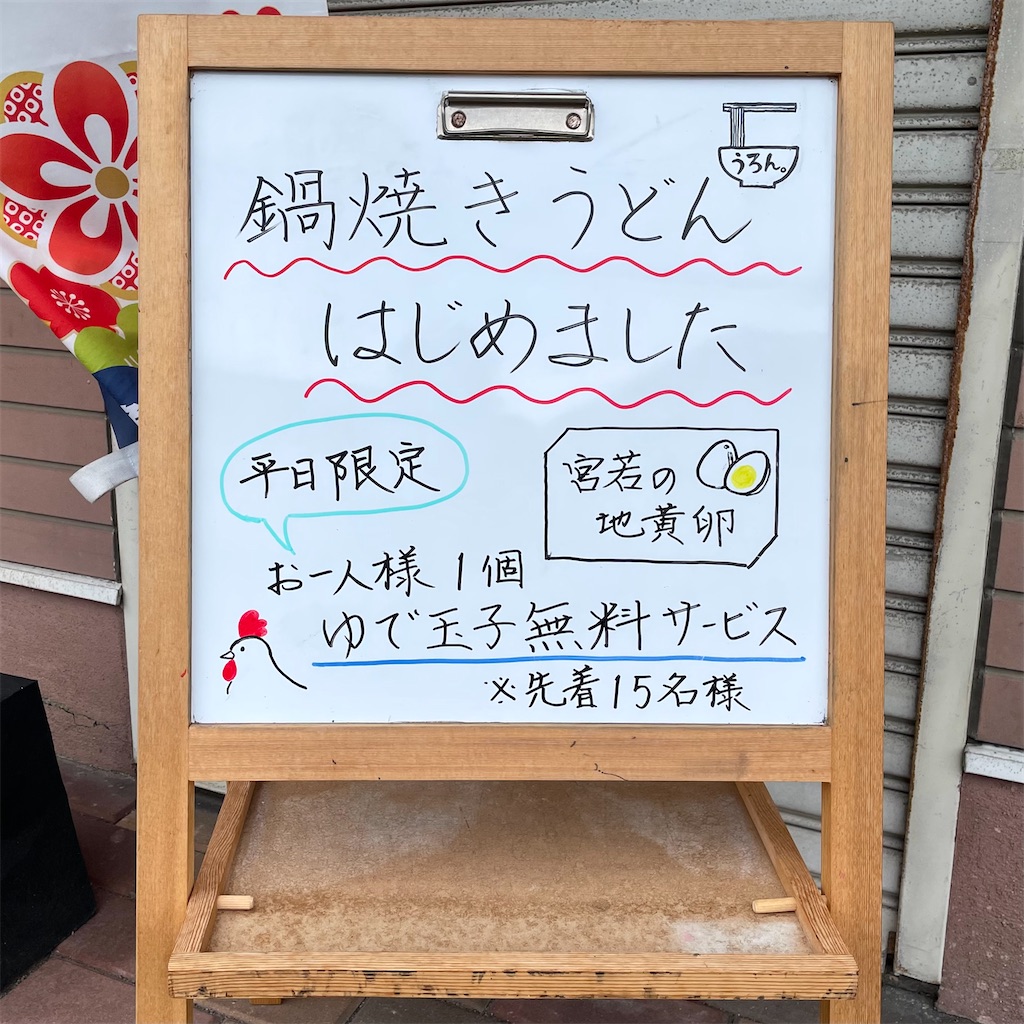 うろん。
鍋焼きうどん
はじめました
平日限定
宮若の
地黄卵
お一人様1個
ゆで玉子無料サービス
※先着15名様